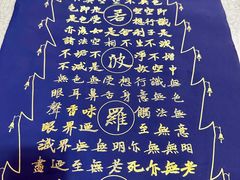 色即是 若 空空即
是色受 想行識
亦復如是舍利子是
諸法空相不生不滅
不垢不 波 淨不增
不減是 故空中
無色無受想行識無
眼耳鼻舌身意無色
聲香味 羅 觸法無
眼界迺 至無意
識界無無明亦無無明
盡迺至無老死亦無老